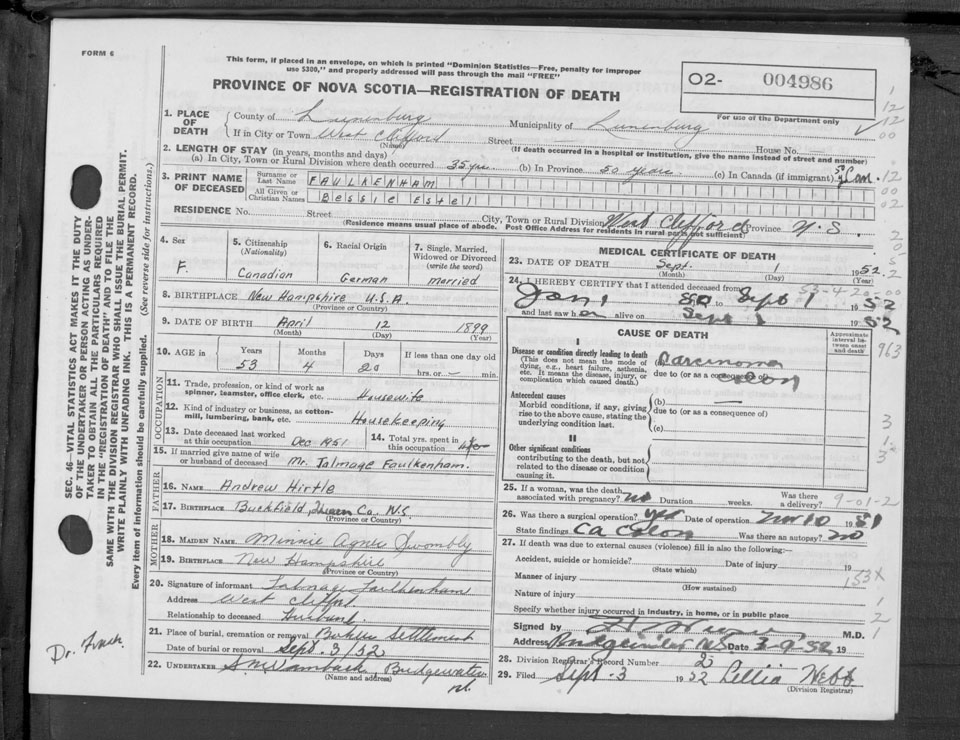 FORM 6
This form, if placed in an envelope, on which is printed "Dominion Statistics—Free, penalty for improper
use $300," and properly addressed will pass through the mail "FREE"
PROVINCE OF NOVA SCOTIA—REGISTRATION OF DEATH
O2- 004986
For use of the Department only
1. PLACE OF DEATH
County of Lunenburg Municipality of Lunenburg
If in City or Town West Clifford Street House No.
(Name) (If death occurred in a hospital or institution, give the name instead of street and number)
2. LENGTH OF STAY (in years, months and days)
(a) In City, Town or Rural Division where death occurred 35 yrs. (b) In Province 50 years. (c) In Canada (if immigrant)
3. PRINT NAME OF DECEASED
Surname or Last Name FAULKENHAM
All Given or Christian Names Bessie Estel
RESIDENCE No. Street City, Town or Rural Division West Clifford Province N.S.
(Residence means usual place of abode. Post Office Address for residents in rural parts not sufficient)
4. Sex F.
5. Citizenship (Nationality) Canadian
6. Racial Origin German
7. Single, Married, Widowed or Divorced (write the word) married
8. BIRTHPLACE New Hampshire U.S.A.
(Province or Country)
9. DATE OF BIRTH April 12 1899
(Month) (Day) (Year)
10. AGE in Years Months Days If less than one day old
53 4 20 hrs. or min.
OCCUPATION
11. Trade, profession, or kind of work as spinner, teamster, office clerk, etc. Housewife
12. Kind of industry or business, as cotton-mill, lumbering, bank, etc. Housekeeping
13. Date deceased last worked at this occupation Dec 1951 14. Total yrs. spent in this occupation
15. If married give name of wife or husband of deceased Mr. Talmage Faulkenham.
FATHER
16. NAME Andrew Hirtle
17. BIRTHPLACE Buckfield, Queens Co., N.S.
(Province or Country)
MOTHER
18. MAIDEN NAME Minnie Agnes Twombly
19. BIRTHPLACE New Hampshire
(Province or Country)
20. Signature of informant Talmage Faulkenham
Address West Clifford.
Relationship to deceased Husband
21. Place of burial, cremation or removal Settlement
Date of burial or removal Sept. 3/52
22. UNDERTAKER Bridgewater
(Name and address)
N.S.
MEDICAL CERTIFICATE OF DEATH
23. DATE OF DEATH Sept. 1 1952
(Month) (Day) (Year)
24. I HEREBY CERTIFY that I attended deceased from
Jan 1 to Sept 1 1952
and last saw her alive on Sept 1 1952
CAUSE OF DEATH
Approximate interval between onset and death
I
Disease or condition directly leading to death
(This does not mean the mode of dying, e.g., heart failure, asthenia, etc. It means the disease, injury, or complication which caused death.)
Carcinoma
due to (or as a consequence of)
colon
Antecedent causes
Morbid conditions, if any, giving rise to the above cause, stating the underlying condition last.
(b) —
due to (or as a consequence of)
(c)
II
Other significant conditions
contributing to the death, but not related to the disease or condition causing it.
25. If a woman, was the death associated with pregnancy? no Duration weeks. Was there a delivery?
26. Was there a surgical operation? yes Date of operation Nov 10 1951
State findings Ca Colon Was there an autopsy? no
27. If death was due to external causes (violence) fill in also the following:—
Accident, suicide or homicide? Date of injury 19
(State which)
Manner of injury
(How sustained)
Nature of injury
Specify whether injury occurred in industry, in home, or in public place
Signed by M.D.
Address Bridgewater NS Date 3-9-52 19
28. Division Registrar's Record Number 2
29. Filed Sept. 3 1952 Lellia Webb
(Division Registrar)
SEC. 46—VITAL STATISTICS ACT MAKES IT THE DUTY
OF THE UNDERTAKER OR PERSON ACTING AS UNDER-
TAKER TO OBTAIN ALL THE PARTICULARS REQUIRED
IN THE "REGISTRATION OF DEATH" AND TO FILE THE
SAME WITH THE DIVISION REGISTRAR WHO SHALL ISSUE THE BURIAL PERMIT.
WRITE PLAINLY WITH UNFADING INK. THIS IS A PERMANENT RECORD.
Every item of information should be carefully supplied. (See reverse side for instructions.)
53-4-20-00
963
9-01-2
153X